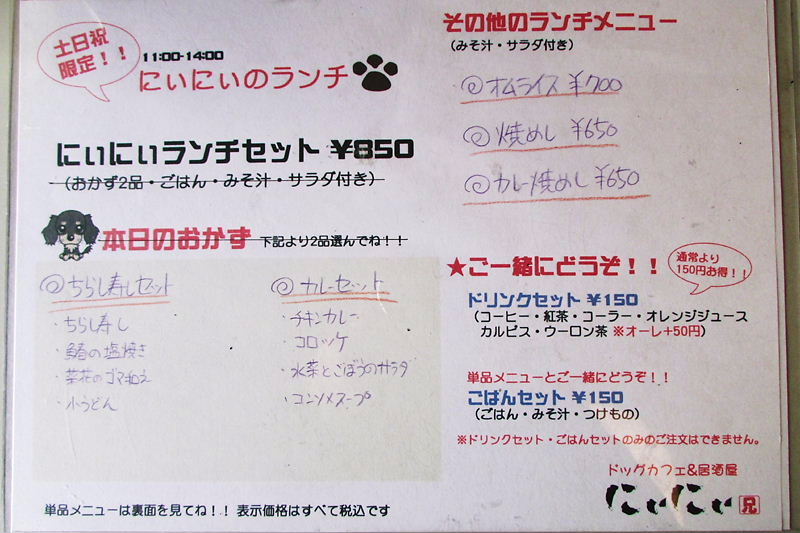 土日祝
限定！！
11:00-14:00
にぃにぃのランチ
にぃにぃランチセット ¥850
（おかず2品・ごはん・みそ汁・サラダ付き）
本日のおかず 下記より2品選んでね！！
◎ちらし寿しセット
・ちらし寿し
・鰆の塩焼き
・菜花のゴマ和え
・小うどん
◎カレーセット
・チキンカレー
・コロッケ
・水菜とごぼうのサラダ
・コンソメスープ
単品メニューは裏面を見てね！！ 表示価格はすべて税込です
その他のランチメニュー
（みそ汁・サラダ付き）
◎オムライス ¥700
◎焼めし ¥650
◎カレー焼めし ¥650
★ご一緒にどうぞ！！
通常より
150円お得！！
ドリンクセット ¥150
（コーヒー・紅茶・コーラー・オレンジジュース
カルピス・ウーロン茶 ※オーレ+50円）
単品メニューとご一緒にどうぞ！！
ごはんセット ¥150
（ごはん・みそ汁・つけもの）
※ドリンクセット・ごはんセットのみのご注文はできません。
ドッグカフェ&居酒屋
にぃにぃ 兄